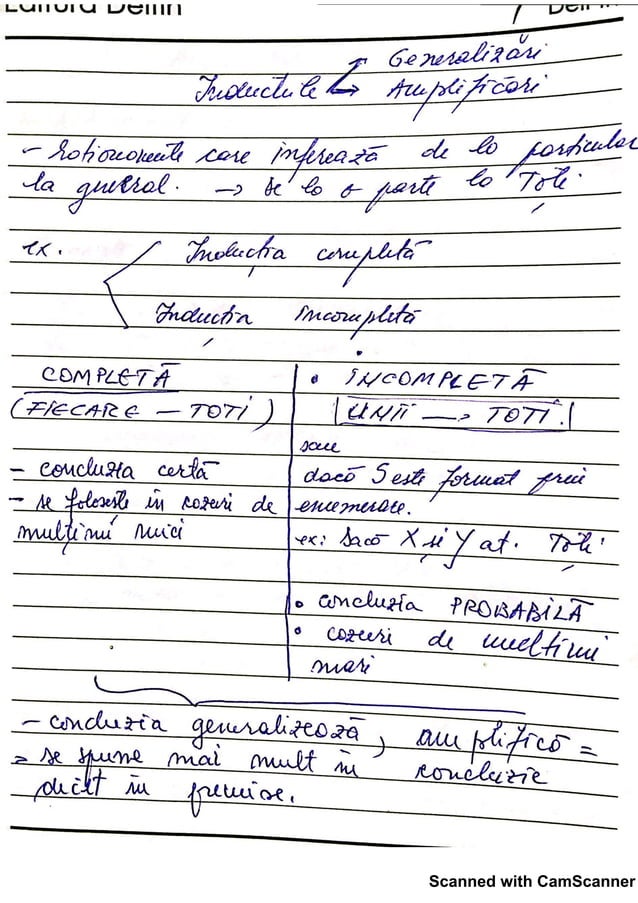 Editura Delfin
Generalizări
Inductule → Amplificări
- Raționamente care inferează de la particular
la general. → De la o parte la Toți.
ex. Inducția completă
Inducția incompletă
COMPLETĂ
(FIECARE — TOȚI)
- concluzia certă
- se folosește în cazuri de
mulțimi mici
• INCOMPLETĂ
UNII → TOȚI.
sau
dacă S este format prin
enumerare.
ex: Dacă X și Y at. Toți
• concluzia PROBABILĂ
• cazuri de mulțimi
mari
- concluzia generalizează, amplifică =
= se spune mai mult în concluzie
decât în premise.
Scanned with CamScanner